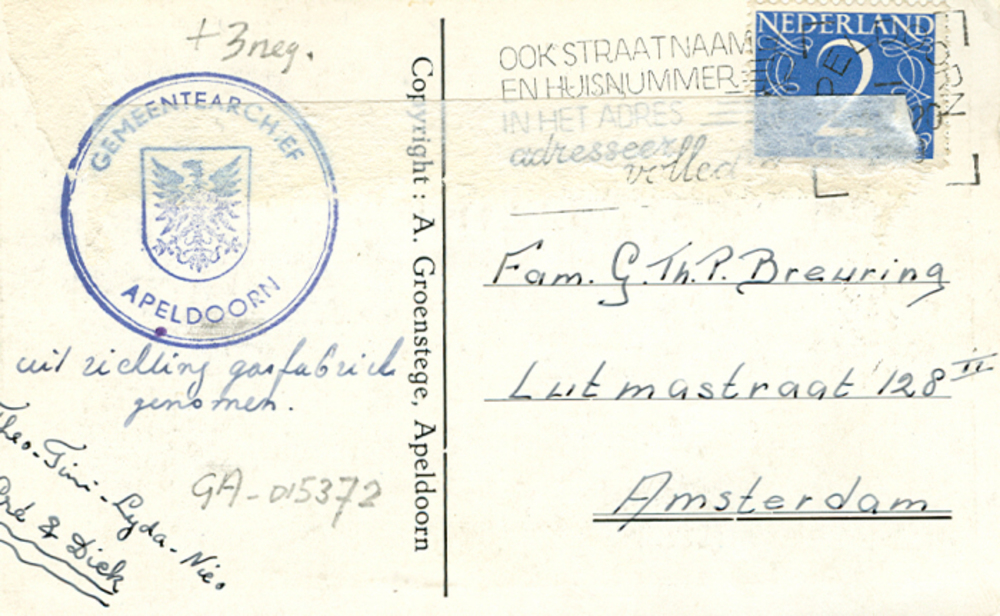 + 3 neg.
GEMEENTEARCHIEF
APELDOORN
uit richting gasfabriek
genomen.
Theo-Tini-Lyda-Nico
& Dick
GA-015372
Copyright : A. Groenstege, Apeldoorn
OOK STRAATNAAM
EN HUISNUMMER
IN HET ADRES
adresseer
volled
NEDERLAND
2
Fam. G. Th. P. Breuring
Lutmastraat 128 II
Amsterdam